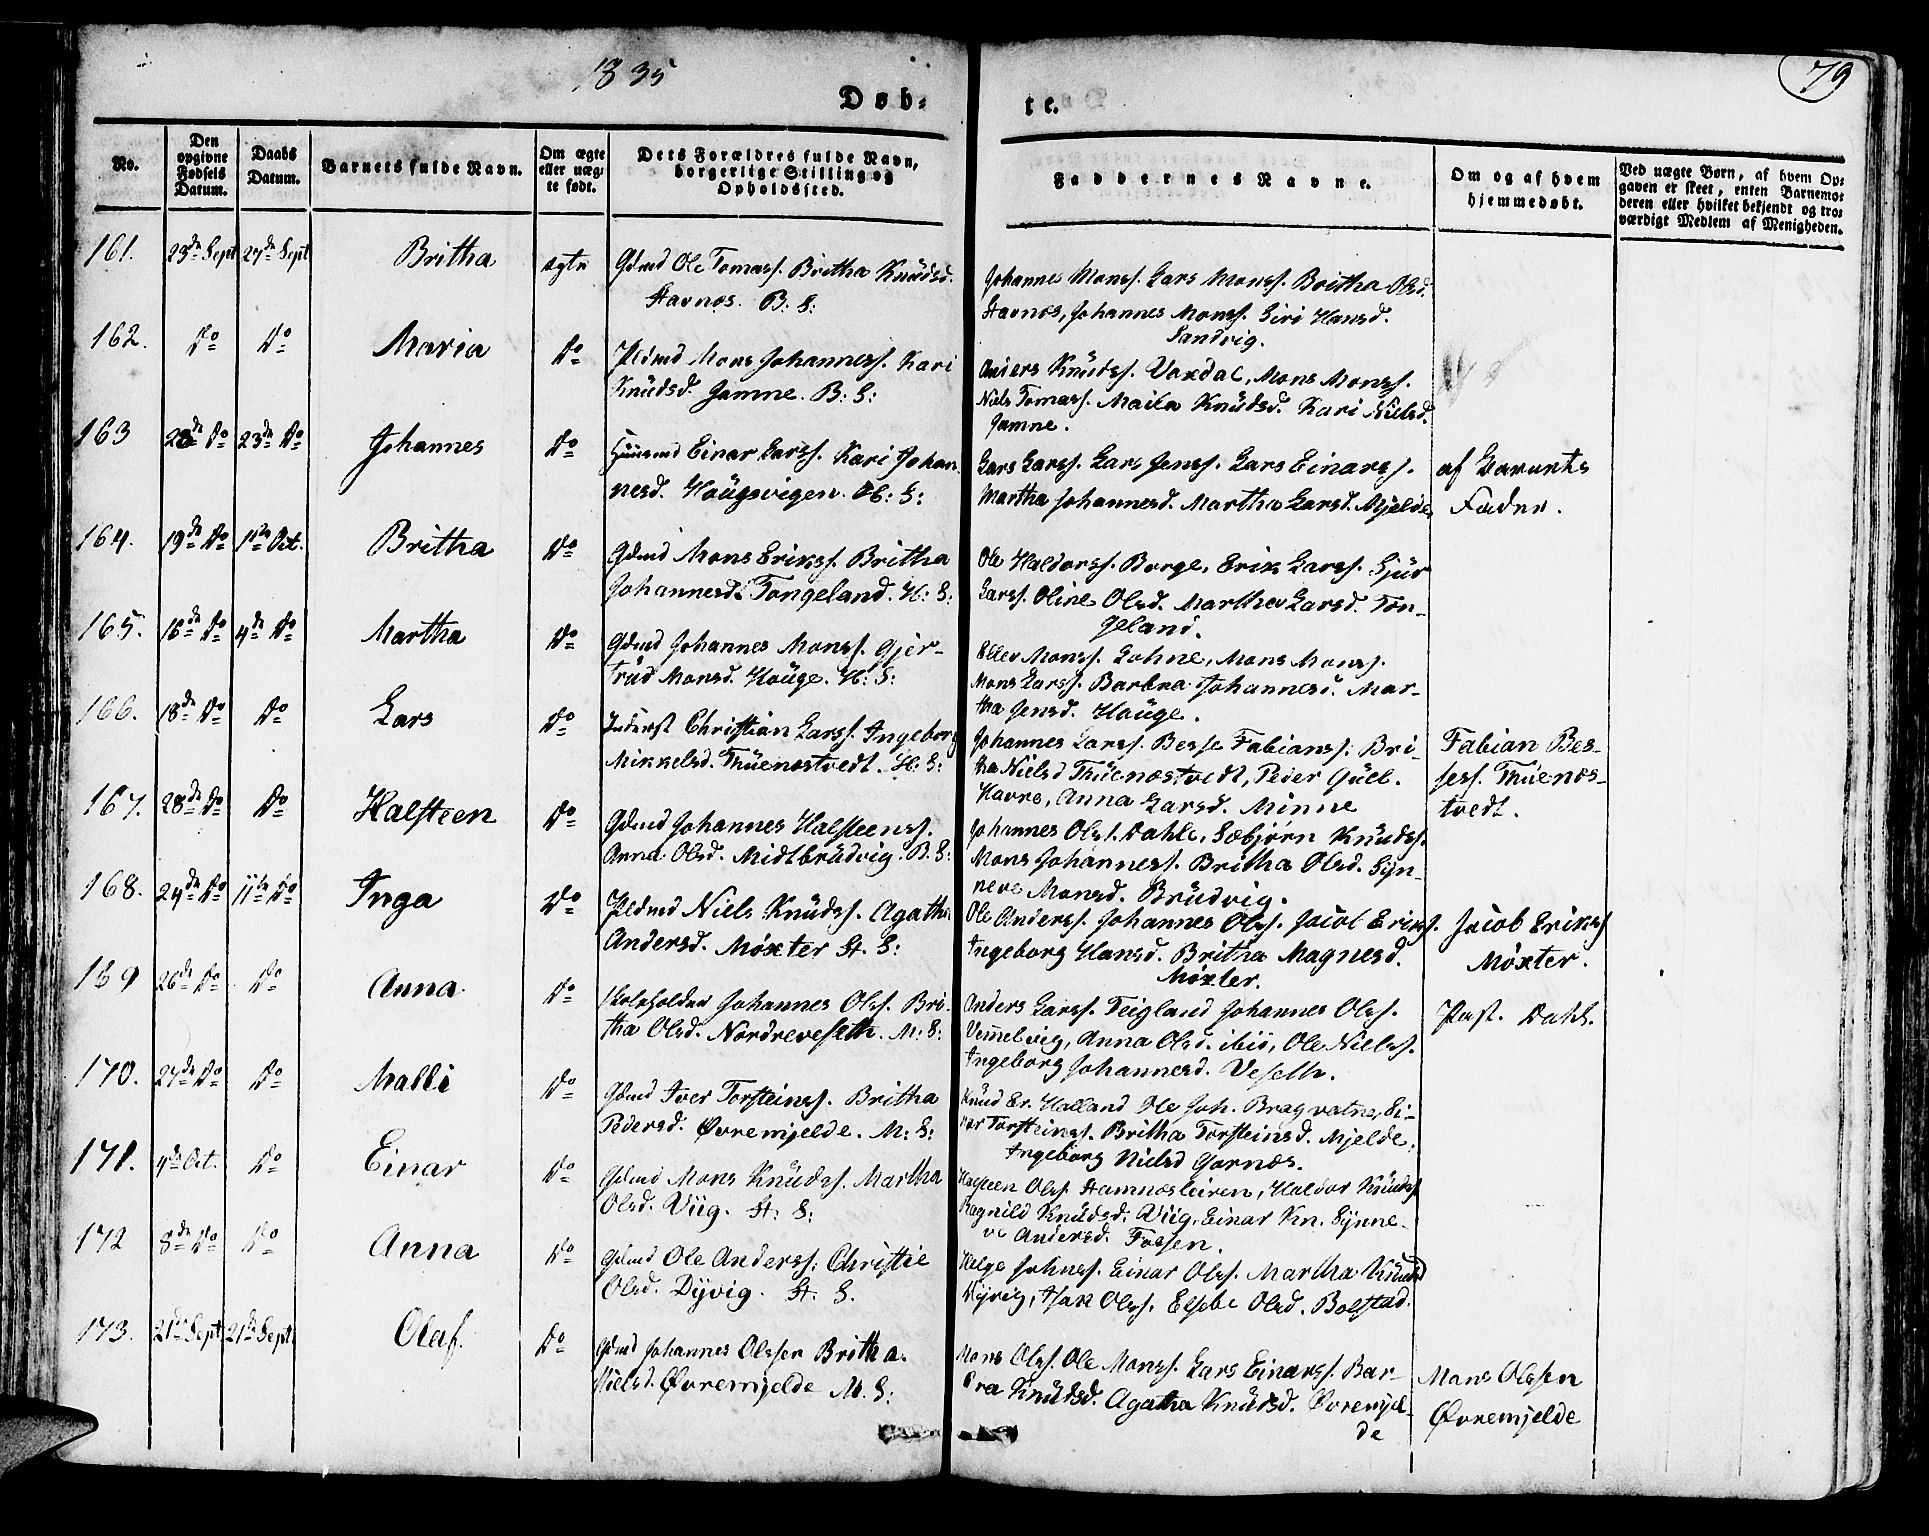 1835
79
Døb-
te.
No.
Den opgivne Fødsels Datum.
Daabs Datum.
Barnets fulde Navn.
Om ægte eller uæg-te født.
Dets Forældres fulde Navn, borgerlige Stilling og Opholdssted.
Faddernes Navne.
Om og af hvem hjemmedøbt.
Ved uægte Børn, af hvem Op-gaven er skeet, enten Barnemo-deren eller hvilket bekjendt og tro-værdigt Medlem af Menigheden.
161. 23de Sept 27de Sept Britha ægte Gdmd Ole Tomass. Britha Knüdsd.
Stavnos. B: S:
Johannes Monss. Lars Monss. Britha Olsd.
Stavnos, Johannes Monss. Siri Hansd.
Sandvig.
162. Do Do Maria Do Pldmd Mons Johanness. Kari
Knüdsd. Jamne. B: S:
Anders Knüdss. Vaxdal, Mons Monss.
Niels Tomass. Knüdsd. Kari Nielsd.
Jamne.
163 Do 23de Do Johannes Do Huusmd Einar Larss. Kari Johan
nesd. Hoügsvigen. S:
Lars Larss. Lars Jenss. Lars Einarss.
Martha Johannesd. Martha Larsd. Mjelde
af Barnets
Fader.
164. 19de Do 11te Oct. Britha Do Gdmd Mons Erikss. Britha
Johannesd. Tongeland. H: S:
Ole Haldorss. Borge, Erik Larss. Sjür
Larss. Oline Olsd. Martha Larsd. Ton-
geland.
165. 16de Do 4de Do Martha Do Gdmd Johannes Monss. Gjer-
trüd Monsd. Hoüge. H: S:
Ellev Monss. Lohne, Mons Monss.
Mons Larss. Barbra Johannesd. Mar-
tha Jensd. Hoüge.
166. 18de Do Do Lars Do Inderst Christian Larss. Ingeborg
Mikkelsd. Thüenostvedt. H: S:
Johannes Larss. Besse Fabianss. Bri-
tha Nielsd Thüenæstvedt, Peder Güll.
Havre, Anna Larsd. Minne
Fabian Bes-
sess. Thüenæs-
tvedt.
167. 28de Do Do Halsteen Do Gdmd Johannes Halsteenss.
Anna Olsd. Midtbrüdvig. B. S:
Johannes Olss. Dahle, Sæbjørn Knüdss.
Mons Johanness. Britha Olsd. Syn-
neve Monsd. Brüdvig.
168. 24de Do 11te Do Inga Do Pldmd Niels Knüdss. Agatha
Andersd. Møxter St. S:
Ole Anderss. Johannes Olss. Jacob Erikss.
Ingeborg Hansd. Britha Magnesd.
Møxter.
Jacob Erikss
Møxter.
169 26de Do Do Anna Do Skoleholder Johannes Olss. Bri-
tha Olsd. Nordreveseth. M: S:
Anders Larss. Teigland Johannes Olss.
Vemmelvig, Anna Olsd. ibid, Ole Nielss.
Ingeborg Johannesd. Veseth.
Past. Dahl.
170. 27de Do Do Malli Do Gdmd Iver Torsteinss. Britha
Pedersd. Øvremjelde. M: S:
Knüd Er. Halland Ole Joh. Bragvatne, Ei-
nar Torsteinss. Britha Torsteinsd. Mjelde.
Ingeborg Nielsd Garnæs.
171. 4de Oct. Do Einar Do Gdmd Mons Knüdss. Martha
Olsd. Viig. St: S:
Halsteen Olss. Stamnæsleiren, Haldor Knüdss
Ragnild Knüdsd. Viig, Einar Kn. Synne-
ve Andersd. Fossen.
172 8de Do Do Anna Do Gdmd Ole Anderss. Christie
Olsd. Dyvig. St. S.
Helge Johnss. Einar Olss. Martha Knüdsd
Dyvig, Isak Olss. Elsebe Olsd. Bolstad.
173. 21de Sept 21de Sept Olaf. Do Gdmd Johannes Olssen Britha.
Nielsd. Øvremjelde M. S:
Mons Olss. Ole Monss. Lars Einarss. Bar-
bra Knüdsd. Agatha Knüdsd. Øvremjel-
de
Mons Olssen
Øvremjelde